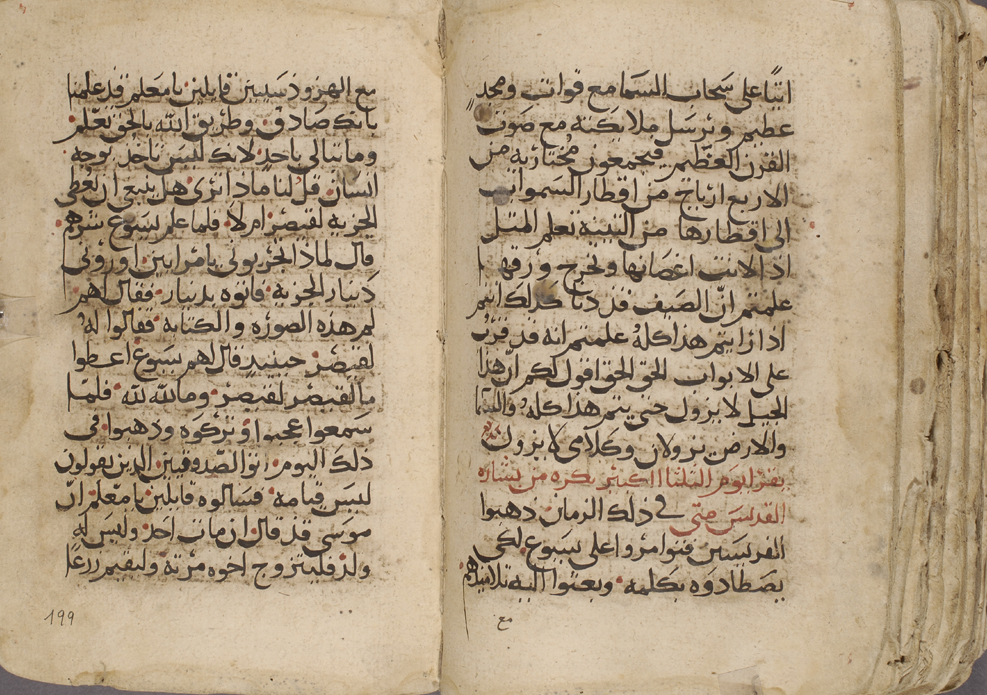 اتيًا على سحاب السما مع قوات ومجد
عظيم ويرسل ملايكته مع صوت
القرن العظيم فيجمعون مختاريه من
الاربع ارياح من اقطار السموات
الى اقطارها من التينة تعلم المثل
اذا لانت اغصانها وخرج ورقها
علمتم انّ الصيف قد دنا كذلك انتم
اذا رايتم هذا كله علمتم انه قد قرب
على الابواب الحق الحق اقول لكم انّ هذا
الجيل لا يزول حتى يتم هذا كله والسما
والارض يزولان وكلامي لا يزول
يقرا يوم الثلثا الكبير بكره من بشاره
القديس متى في ذلك الزمان ذهبوا
الفريسيين فتوامروا على يسوع لكي
يصطادوه بكلمه وبعثوا اليه تلاميذهم
مع
مع الهيرودسيين قايلين يا معلم قد علمنا
بانك صادق وطريق الله بالحق تعلم
وما تبالي باحد لانك ليس تاخذ بوجه
انسان قل لنا ماذا ترى هل ينبغي ان نعطي
الجزية لقيصر ام لا فلما علم يسوع شرهم
قال لماذا تجربوني يا مرايين اوروني
دينار الجزية فاتوه بدينار فقال لهم
لمن هذه الصوره والكتابه فقالوا له
لقيصر حينيذ قال لهم يسوع اعطوا
ما لقيصر لقيصر وما لله لله فلما
سمعوا عجبوا وتركوه وذهبوا في
ذلك اليوم اتوا الصدوقيين الذين يقولون
ليس قيامة فسالوه قايلين يا معلم انّ
موسى قد قال ان مات احد وليس له
ولد فليتزوج اخوه مرته وليقيم زرعًا
199